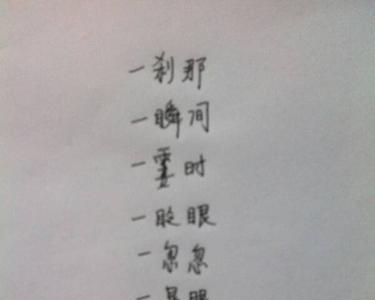 一刹那
一瞬间
一霎时
一眨眼
一忽忽